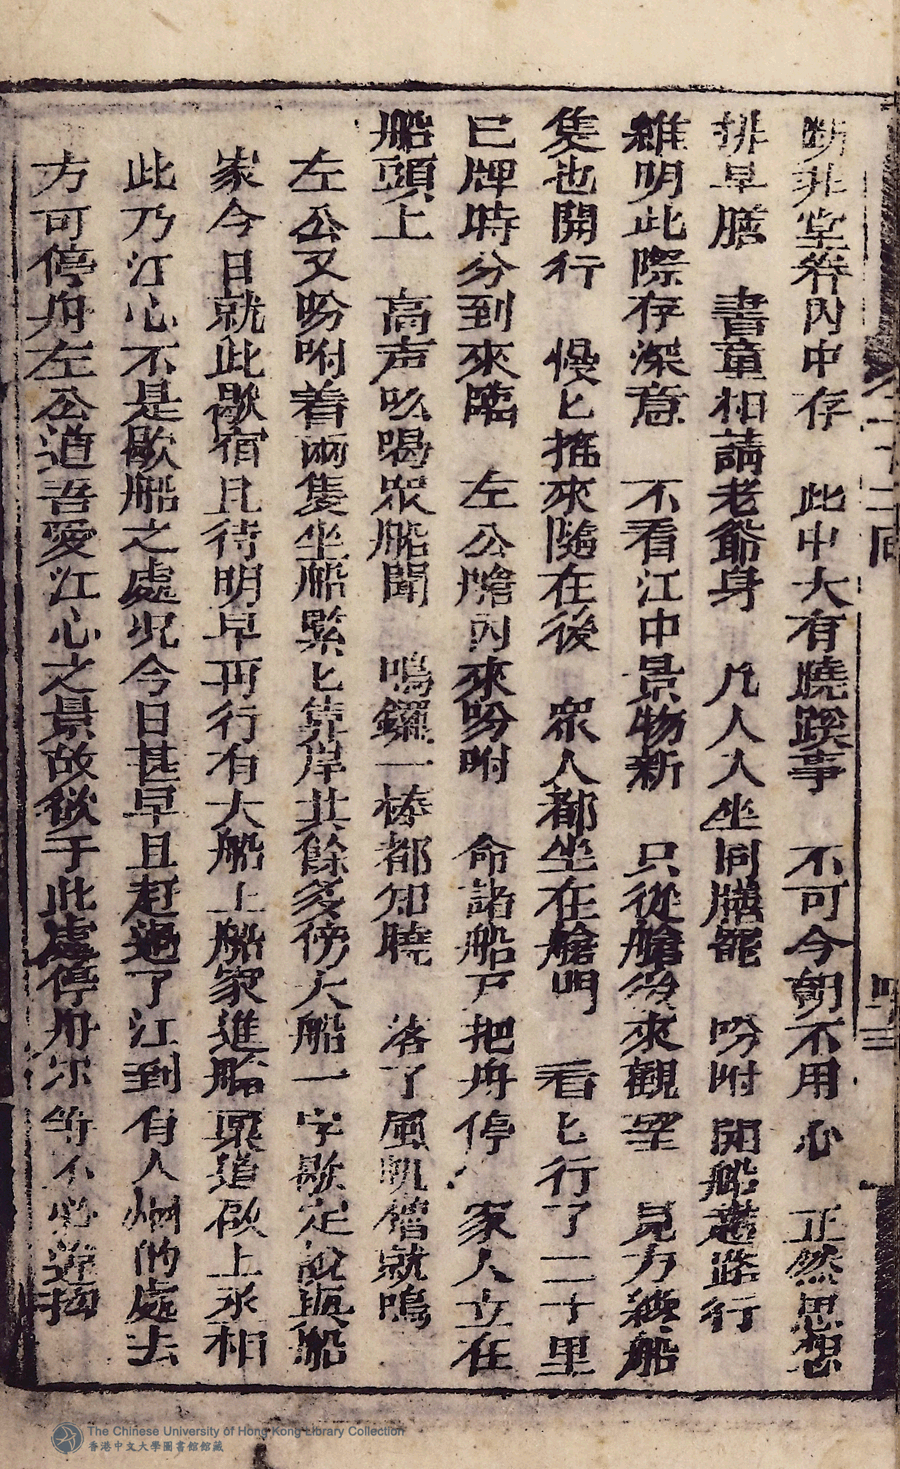 非堂眷內中存　此中大有蹺蹊事　不可今朝不用心　正然思想
排早膳　書童相請老爺身　凡人入坐同膳罷　吩咐開船趲路行
雖明此際存深意　不看江中景物新　只從艙後來觀望　見方纔船
隻也開行　慢匕搖來隨在後　眾人都坐在艙門　看匕行了二十里
巳牌時分到來臨　左公艙內來吩咐　命諸船戸把舟停　家人立在
船頭上　高声吆喝眾船聞　鳴鑼一棒都知曉　落了風帆就鳴
左公又吩咐着兩隻坐船緊匕靠岸其餘多傍大船一字歇定說與船
家今日就此歇宿且待明早再行有大船上船家進艙稟道啟上丞相
此乃江心不是歇船之處况今日甚早且赶過了江到有人烟的處去
方可停舟左公道吾愛江心之景故欲于此處停舟尔等不必違拗
二十二回
The Chinese University of Hong Kong Library Collection
香港中文大學圖書館館藏